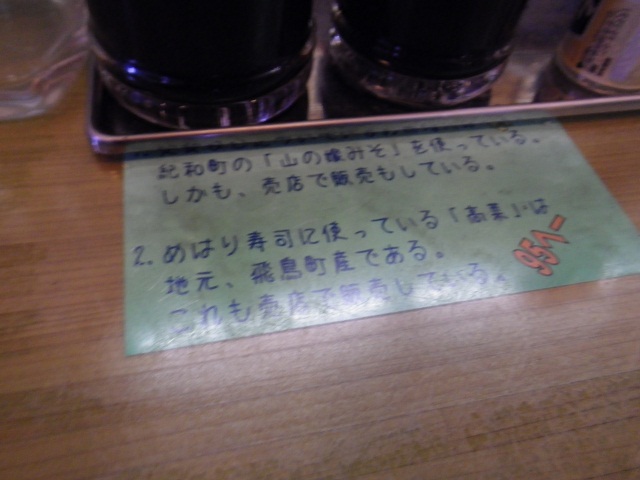 紀和町の「山の嫁みそ」を使っている。
しかも、売店で販売もしている。
2. めはり寿司に使っている「高菜」は
地元、飛鳥町産である。
これも売店で販売している。
95へー